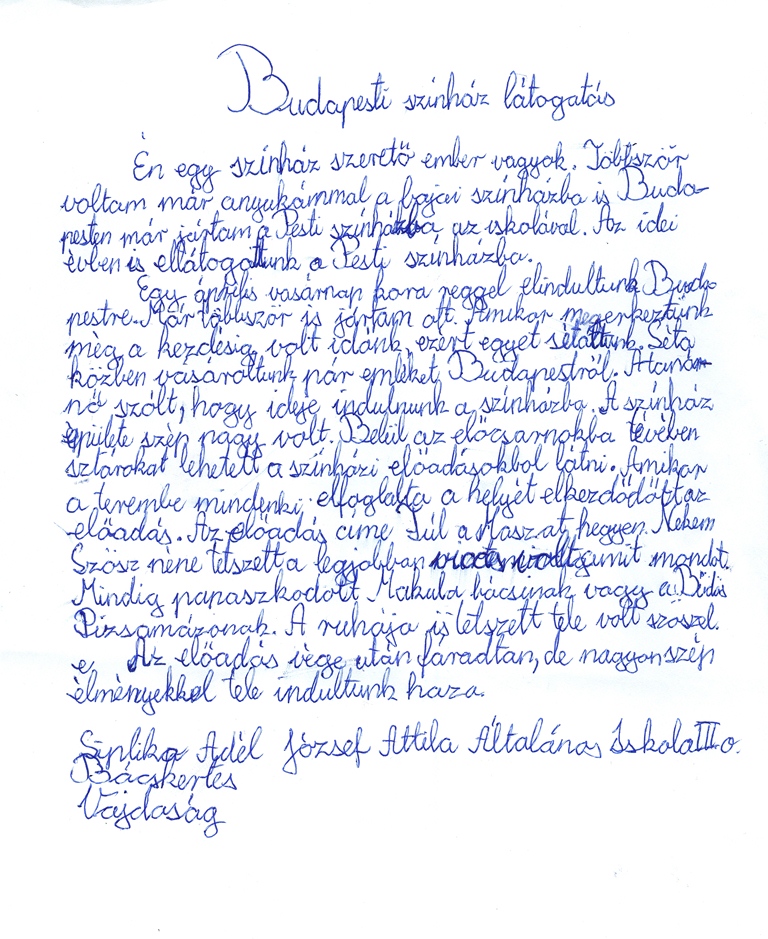 Budapesti színház látogatás
Én egy színház szerető ember vagyok. Többször
voltam már anyukámmal a bajai színházba is Buda-
pesten már jártam a Pesti színházba az iskolával. Az idei
évben is ellátogattunk a Pesti színházba.
Egy április vasárnap kora reggel elindultunk Buda-
pestre. Már többször is jártam ott. Amikor megérkeztünk
még a kezdésig volt idönk, ezért egyet sétáltunk. Séta
közben vásároltunk pár emléket Budapestről. A tanár-
nő szólt, hogy ideje indulnunk a színházba. A színház
épülete szép nagy volt. Belül az előcsarnokba tévében
sztárokat lehetett a színházi előadásokbol látni. Amikor
a terembe mindenki elfoglalta a helyét elkezdődött az
előadás. Az előadás címe Túl a Maszat hegyen. Nekem
Szösz néne tetszett a legjobban amit mondot.
Mindig papaszkodott Makula bácsinak vagy a Büdis
Pizsamázonak. A ruhája is tetszett tele volt szöszel.
e. Az előadás vége után fáradtan, de nagyon szép
élményekkel tele indultunk haza.
Siplika Adél József Attila Általános Iskola III. o.
Bácskertes
Vajdaság